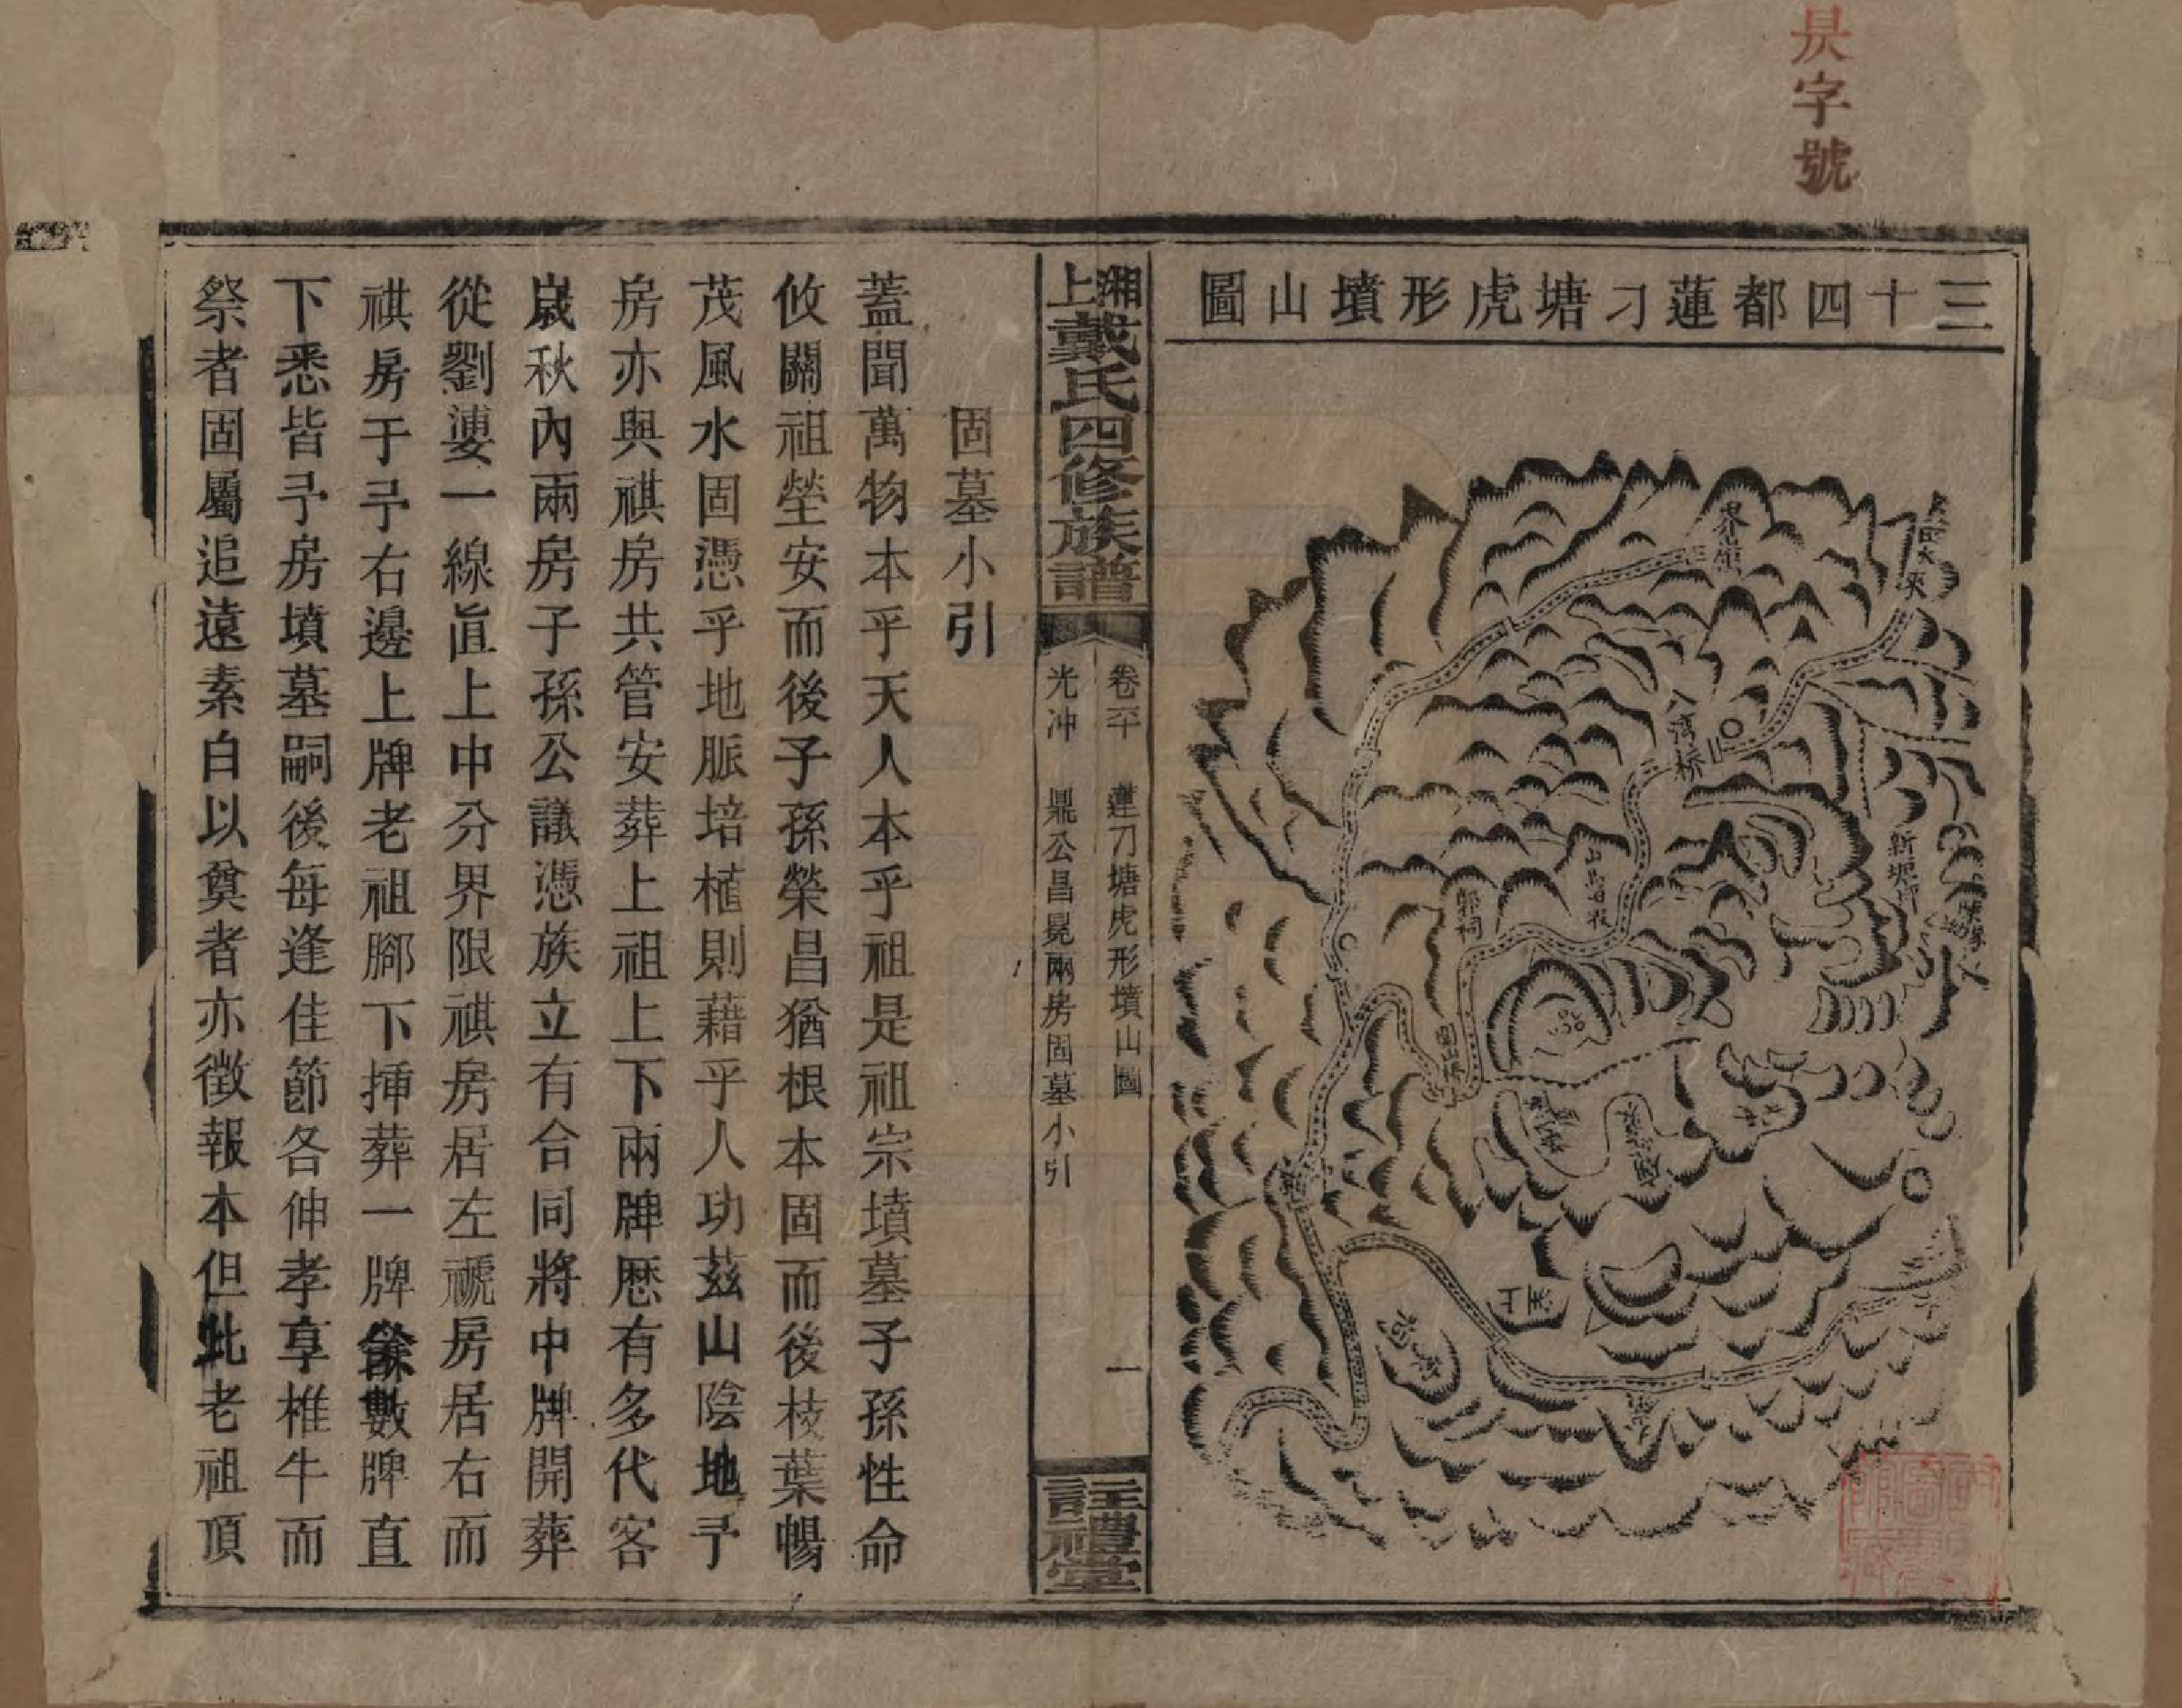 昃字號
三十四都蓮刁塘虎形墳山圖
界嶺
水來
八灣橋
新坝
郭祠
湘上戴氏四修族譜
卷 蓮刀塘虎形墳山圖
光冲 鼎公昌晃兩房固墓小引
一
註禮堂
固墓小引
蓋聞萬物本乎天人本乎祖是祖宗墳墓子孫性命
攸關祖塋安而後子孫榮昌猶根本固而後枝葉暢
茂風水固憑乎地脈培植則藉乎人功茲山陰地予
房亦與祺房共管安葬上祖上下兩牌厯有多代客
歲秋內兩房子孫公議憑族立有合同將中牌開葬
從劉婆一線直上中分界限祺房居左禠房居右而
祺房于予右邊上牌老祖腳下揷葬一牌餘數牌直
下悉皆予房墳墓嗣後每逢佳節各伸孝享椎牛而
祭者固屬追遠素白以奠者亦徵報本但此老祖頂